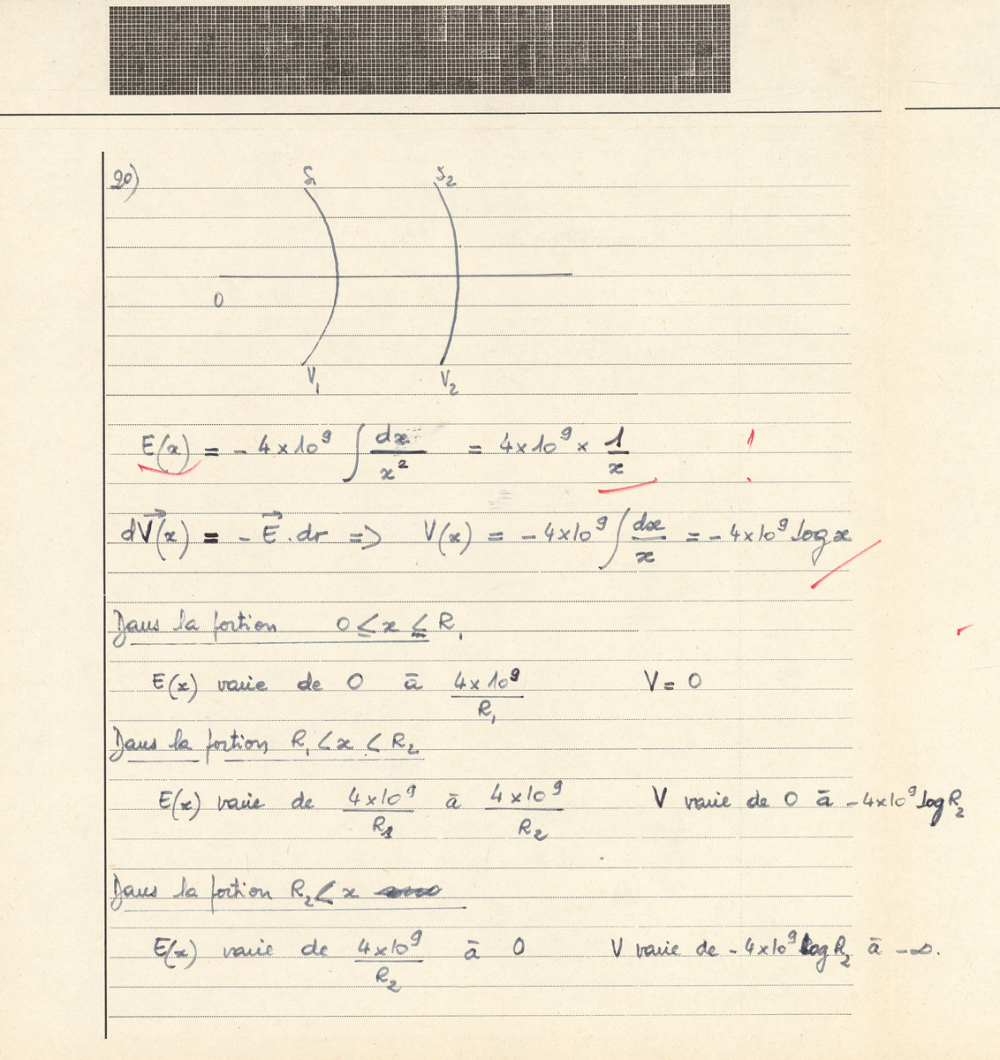 2°)
S1 S2
O
V1 V2
E(x) = - 4 x 10^9 ∫ dx/x² = 4 x 10^9 x 1/x !
dV(x) = - E . dr => V(x) = - 4 x 10^9 ∫ dx/x = - 4 x 10^9 log x
Dans la portion 0 ≤ x ≤ R1
E(x) varie de 0 à 4 x 10^9/R1 V = 0
Dans la portion R1 < x < R2
E(x) varie de 4 x 10^9/R1 à 4 x 10^9/R2 V varie de 0 à - 4 x 10^9 log R2
Dans la portion R2 < x
E(x) varie de 4 x 10^9/R2 à 0 V varie de - 4 x 10^9 log R2 à - ∞.